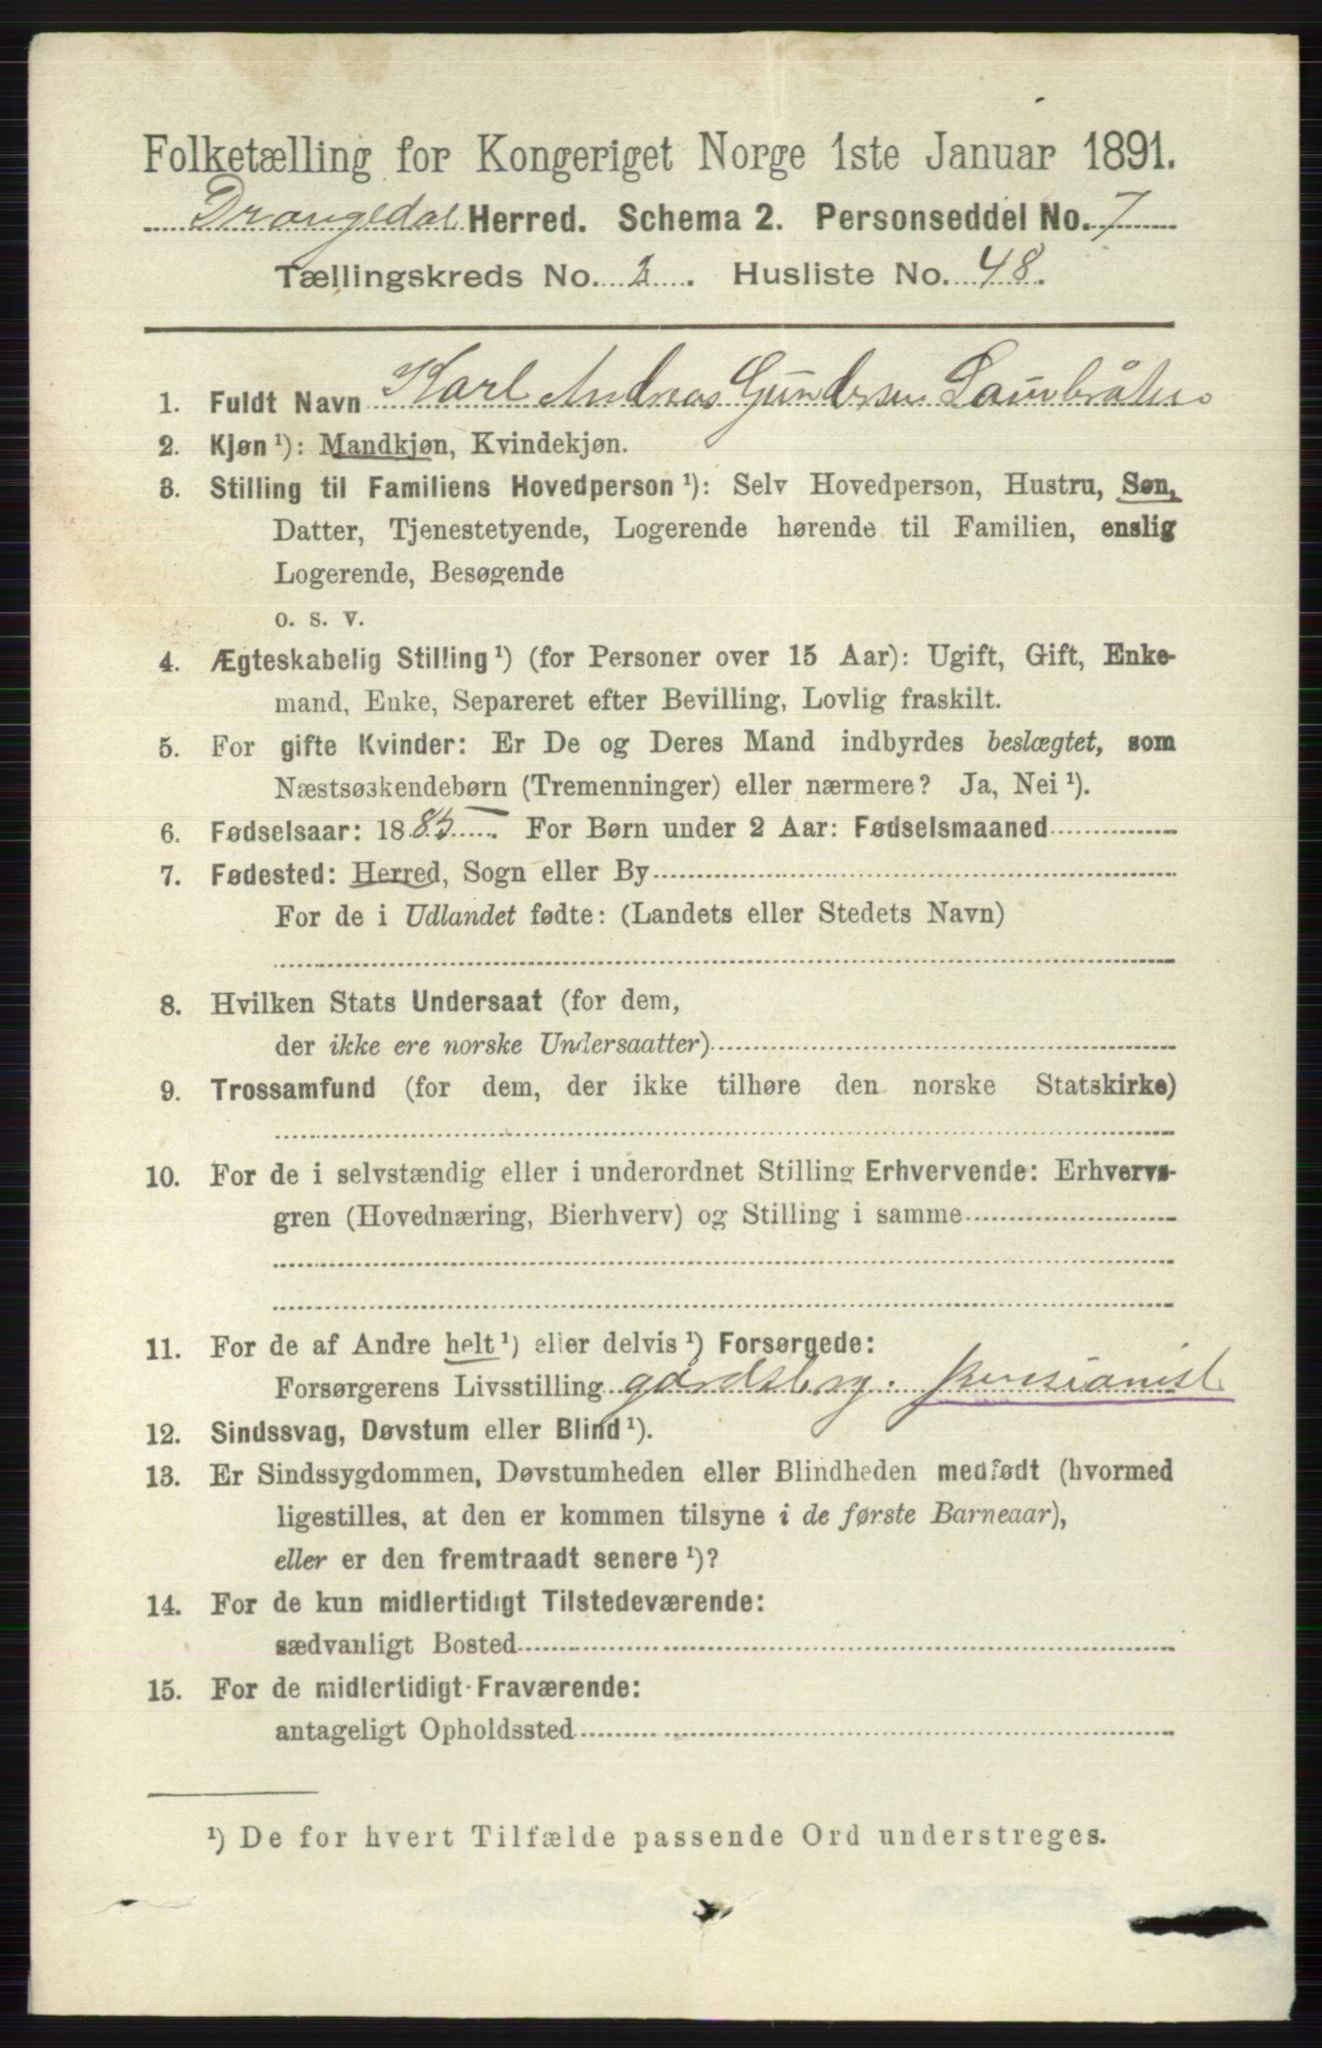 Folketælling for Kongeriget Norge 1ste Januar 1891.
Drangedal Herred. Schema 2. Personseddel No. 7
Tællingskreds No. 2. Husliste No. 48.
1. Fuldt Navn Karl Andreas Gundersen Laubråten
2. Kjøn ¹): Mandkjøn, Kvindekjøn.
3. Stilling til Familiens Hovedperson ¹): Selv Hovedperson, Hustru, Søn,
Datter, Tjenestetyende, Logerende hørende til Familien, enslig
Logerende, Besøgende
o. s. v.
4. Ægteskabelig Stilling ¹) (for Personer over 15 Aar): Ugift, Gift, Enke-
mand, Enke, Separeret efter Bevilling, Lovlig fraskilt.
5. For gifte Kvinder: Er De og Deres Mand indbyrdes beslægtet, som
Næstsøskendebørn (Tremenninger) eller nærmere? Ja, Nei ¹).
6. Fødselsaar: 1885. For Børn under 2 Aar: Fødselsmaaned
7. Fødested: Herred, Sogn eller By
For de i Udlandet fødte: (Landets eller Stedets Navn)
8. Hvilken Stats Undersaat (for dem,
der ikke ere norske Undersaatter)
9. Trossamfund (for dem, der ikke tilhøre den norske Statskirke)
10. For de i selvstændig eller i underordnet Stilling Erhvervende: Erhvervs-
gren (Hovednæring, Bierhverv) og Stilling i samme
11. For de af Andre helt ¹) eller delvis ¹) Forsørgede:
Forsørgerens Livsstilling gårdsbrg. pensianist
12. Sindssvag, Døvstum eller Blind ¹).
13. Er Sindssygdommen, Døvstumheden eller Blindheden medfødt (hvormed
ligestilles, at den er kommen tilsyne i de første Barneaar),
eller er den fremtraadt senere ¹)?
14. For de kun midlertidigt Tilstedeværende:
sædvanligt Bosted
15. For de midlertidigt Fraværende:
antageligt Opholdssted
¹) De for hvert Tilfælde passende Ord understreges.